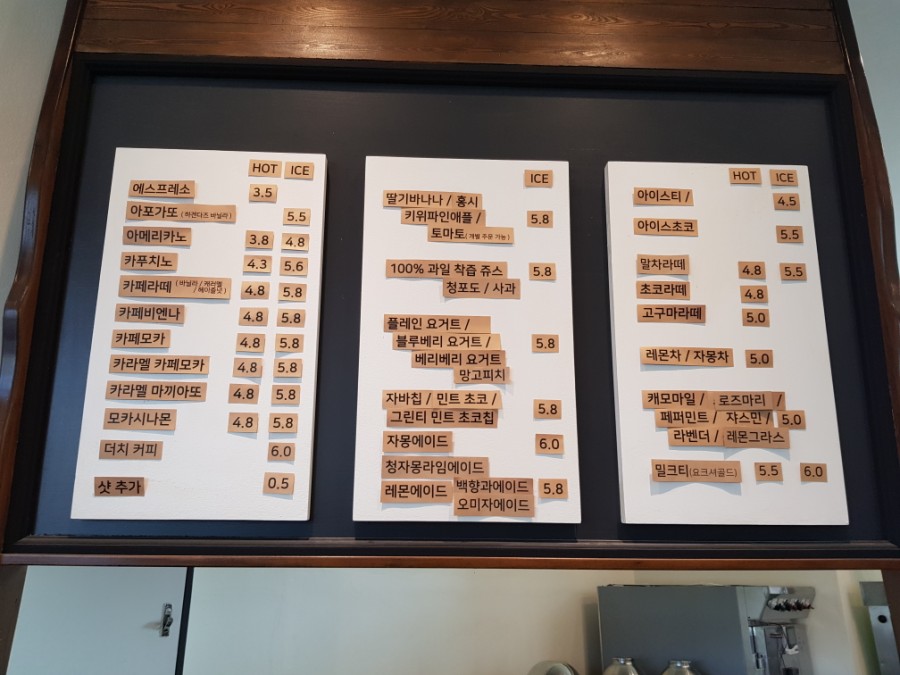 HOT ICE
에스프레소 3.5
아포가또 (하겐다즈 바닐라) 5.5
아메리카노 3.8 4.8
카푸치노 4.3 5.6
카페라떼 (바닐라 / 캐러멜 / 헤이즐넛) 4.8 5.8
카페비엔나 4.8 5.8
카페모카 4.8 5.8
카라멜 카페모카 4.8 5.8
카라멜 마끼아또 4.8 5.8
모카시나몬 4.8 5.8
더치 커피 6.0
샷 추가 0.5
ICE
딸기바나나 / 홍시
키위파인애플 / 5.8
토마토 (개별 주문 가능)
100% 과일 착즙 쥬스 5.8
청포도 / 사과
플레인 요거트 /
블루베리 요거트 / 5.8
베리베리 요거트
망고피치
자바칩 / 민트 초코 /
그린티 민트 초코칩 5.8
자몽에이드 6.0
청자몽라임에이드
레몬에이드 백향과에이드 5.8
오미자에이드
HOT ICE
아이스티 / 4.5
아이스초코 5.5
말차라떼 4.8 5.5
초코라떼 4.8
고구마라떼 5.0
레몬차 / 자몽차 5.0
캐모마일 / 로즈마리 /
페퍼민트 / 쟈스민 / 5.0
라벤더 / 레몬그라스
밀크티(요크셔골드) 5.5 6.0